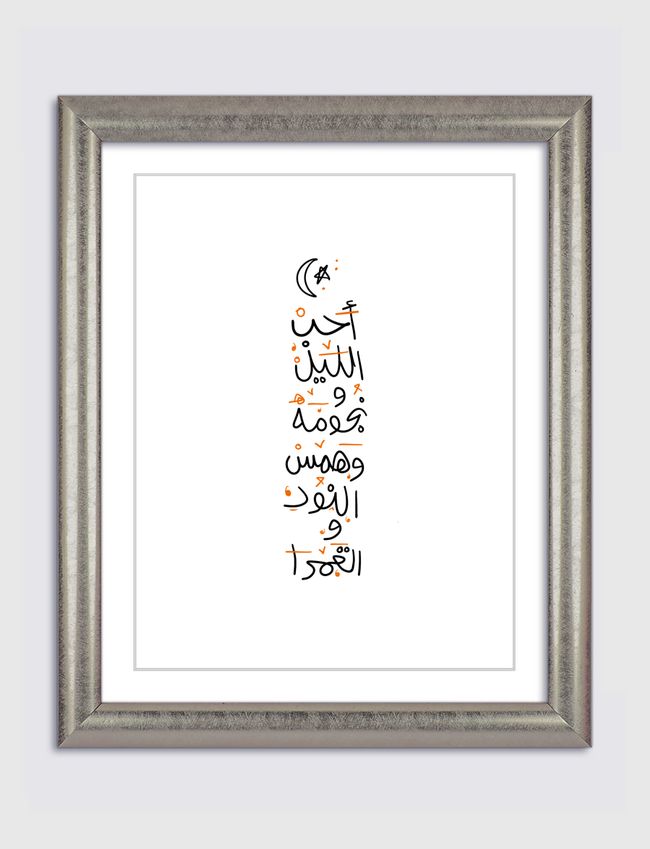 أحب
الليل
و
نجومه
وهمس
النود
و
القمرا